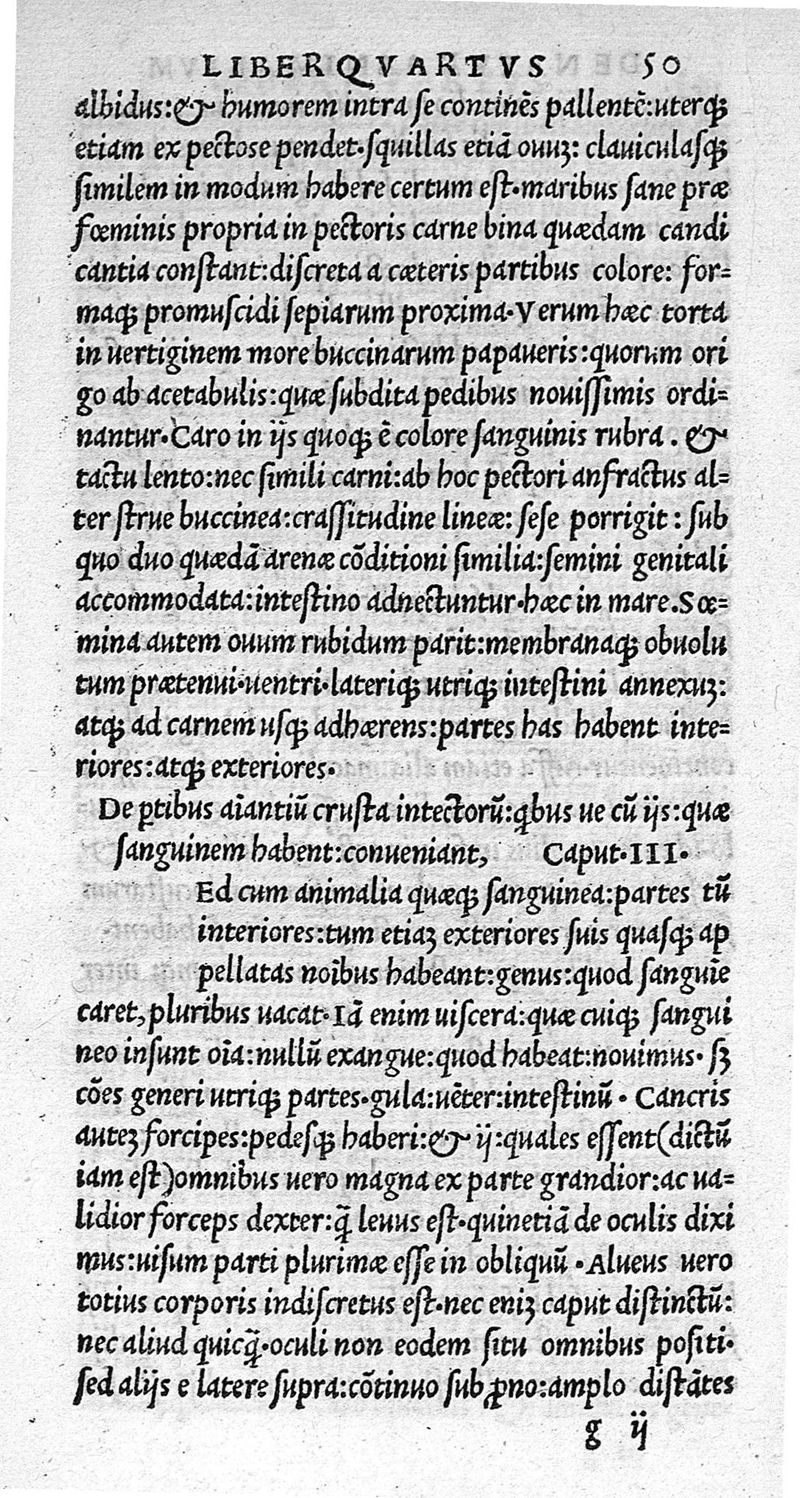 LIBER QVARTVS 50
albidus:& humorem intra se continẽs pallentẽ:uterq;
etiam ex pectose pendet·squillas etiã ouuʒ: clauiculasq;
similem in modum habere certum est·maribus sane præ
fœminis propria in pectoris carne bina quædam candi
cantia constant:discreta a cæteris partibus colore: for=
maq; promuscidi sepiarum proxima·Verum hæc torta
in uertiginem more buccinarum papaueris:quorum ori
go ab acetabulis:quæ subdita pedibus nouissimis ordi=
nantur·Caro in ijs quoq; ẽ colore sanguinis rubra . &
tactu lento:nec simili carni:ab hoc pectori anfractus al=
ter strue buccinea:crassitudine lineæ: sese porrigit : sub
quo duo quædã arenæ cõditioni similia:semini genitali
accommodata:intestino adnectuntur·hæc in mare.Sœ=
mina autem ouum rubidum parit:membranaq; obuolu
tum prætenui·uentri·lateriq; utriq; intestini annexuʒ:
atq; ad carnem usq; adhærens:partes has habent inte=
riores:atq; exteriores·
De ꝑtibus aĩantiũ crusta intectorũ:qbus ue cũ ijs:quæ
sanguinem habent:conueniant, Caput·III·
Ed cum animalia quæq; sanguinea:partes tũ
interiores:tum etiaʒ exteriores suis quasq; ap
pellatas noĩbus habeant:genus:quod sanguĩe
caret,pluribus uacat·Iã enim uiscera:quæ cuiq; sangui
neo insunt oĩa:nullũ exangue:quod habeat:nouimus· sʒ
cões generi utriq; partes·gula:uẽter:intestinũ · Cancris
auteʒ forcipes:pedesq; haberi:& ij:quales essent(dictũ
iam est)omnibus uero magna ex parte grandior:ac ua=
lidior forceps dexter:q̃ leuus est·quinetiã de oculis dixi
mus:uisum parti plurimæ esse in obliquũ ·Alueus uero
totius corporis indiscretus est·nec eniʒ caput distinctũ:
nec aliud quicq̃·oculi non eodem situ omnibus positi·
sed alijs e latere supra:cõtinuo sub ꝓno:amplo distãtes
g ij